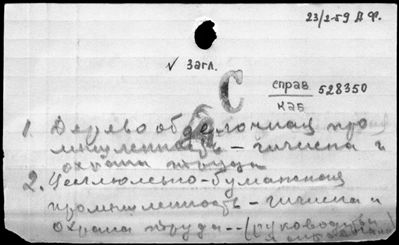 23/2-59 А.Ф.
√ Загл.
С
справ 528350
каб
1. Деревообделочная про
мышленность – гигиена и
охрана труда
2. Целлюлозно-бумажная
промышленность – гигиена и
охрана труда -- (руководства
и справочники)